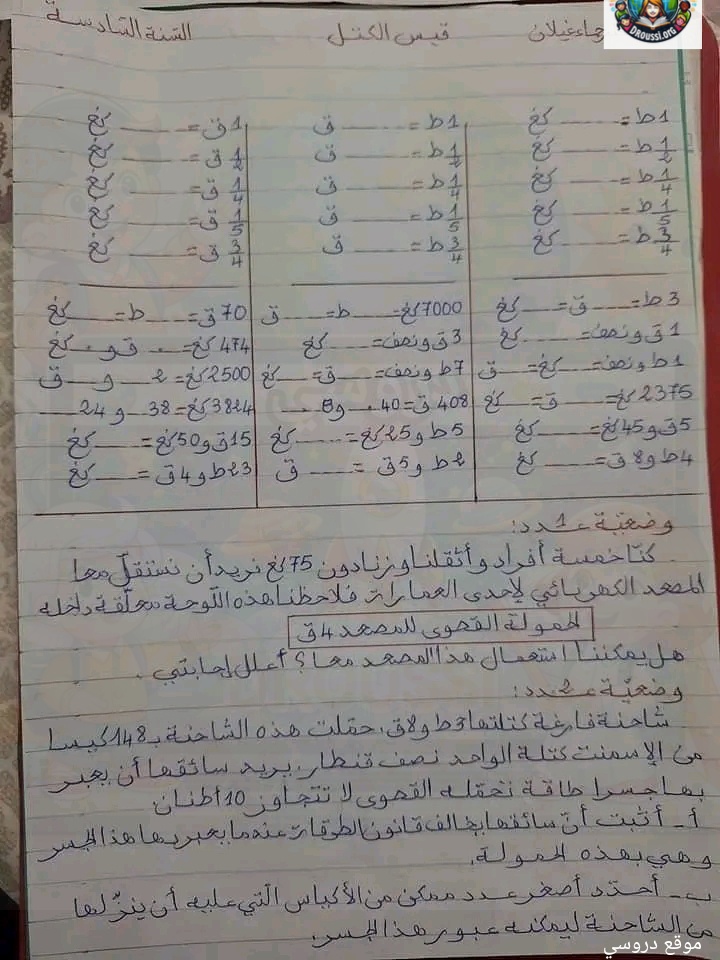 السّنة السّادسة
قيس الكتل
رجاء غيلان
DROUSSI.ORG
1ط = ____ كغ
1/2 ط = ____ كغ
1/4 ط = ____ كغ
1/5 ط = ____ كغ
3/4 ط = ____ كغ
1ط = ____ ق
1/2 ط = ____ ق
1/4 ط = ____ ق
1/5 ط = ____ ق
3/4 ط = ____ ق
1ق = ____ كغ
1/2 ق = ____ كغ
1/4 ق = ____ كغ
1/5 ق = ____ كغ
3/4 ق = ____ كغ
3ط = ____ ق = ____ كغ
1ق ونصف = ____ كغ
1ط ونصف = ____ كغ = ____ ق
2375 كغ = ____ ق ____ كغ
5ق و45كغ = ____ كغ
4ط و8ق = ____ كغ
7000كغ = ____ ط = ____ ق
3ق ونصف = ____ كغ
7ط ونصف = ____ ق = ____ كغ
408ق = 40.. و8..
5ط و25كغ = ____ كغ
2ط و5ق = ____ ق
70ق = ____ ط = ____ كغ
474كغ = .. ق و.. كغ
2500كغ = 2 __ و __ ق
3824كغ = 38__ و24__
15ق و50كغ = ____ كغ
23ط و4ق = ____ كغ
وضعيّة عـ1ـدد:
كنّا خمسة أفراد وأثقلنا وزنا دون 75كغ نريد أن نستقلّ معا
المصعد الكهربائي لإحدى العمارات فلاحظنا هذه اللّوحة معلّقة داخله
الحمولة القصوى للمصعد 4ق
هل يمكننا استعمال هذا المصعد معا؟ أعلل إجابتي.
وضعيّة عـ2ـدد:
شاحنة فارغة كتلتها 3ط و8ق، حمّلت هذه الشاحنة بـ 148 كيسا
من الإسمنت كتلة الواحد نصف قنطار. يريد سائقها أن يعبر
بها جسرا طاقة تحمّله القصوى لا تتجاوز 10أطنان
أ- أثبت أنّ سائقها يخالف قانون الطرقات عندما يعبر بها هذا الجسر
وهي بهذه الحمولة.
ب- أحدّد أصغر عدد ممكن من الأكياس الّتي عليه أن ينزّلها
من الشاحنة ليمكنه عبور هذا الجسر.
موقع دروسي